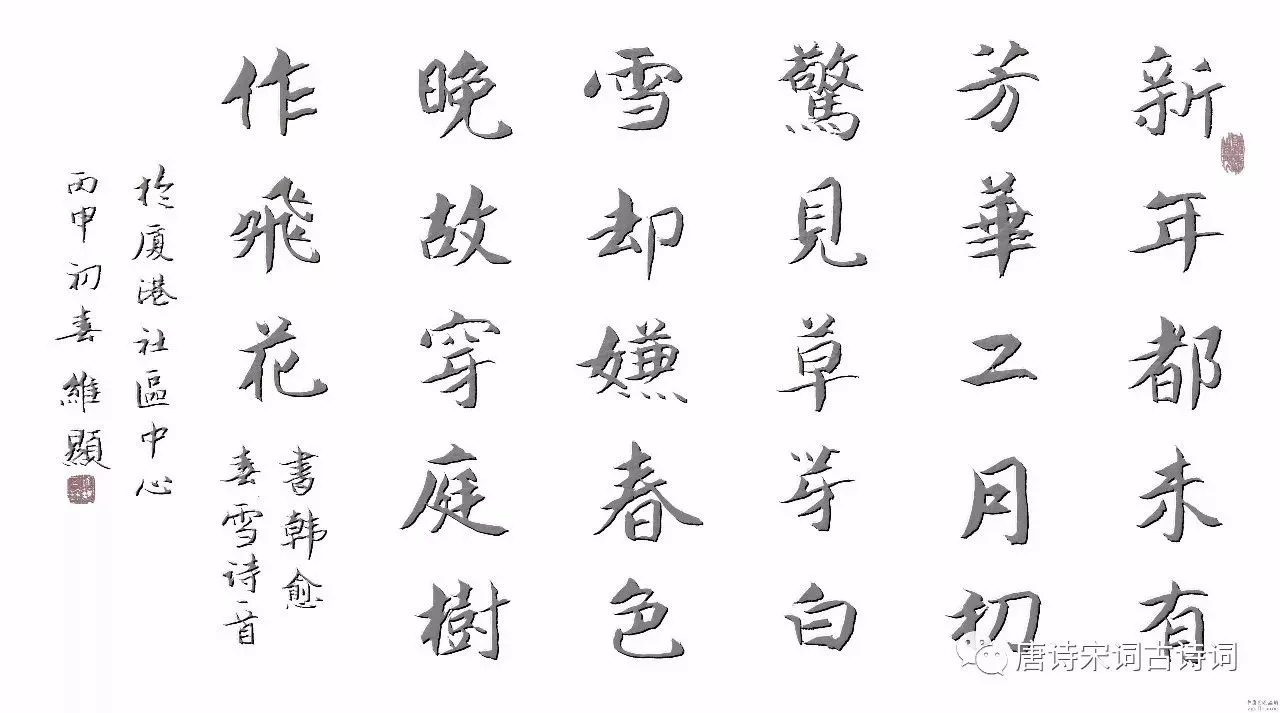 新年都未有
芳華二月初
驚見草芽白
雪却嫌春色
晚故穿庭樹
作飛花
書韩愈
春雪诗一首
於廈港社區中心
丙申初春維顯
唐诗宋词古诗词